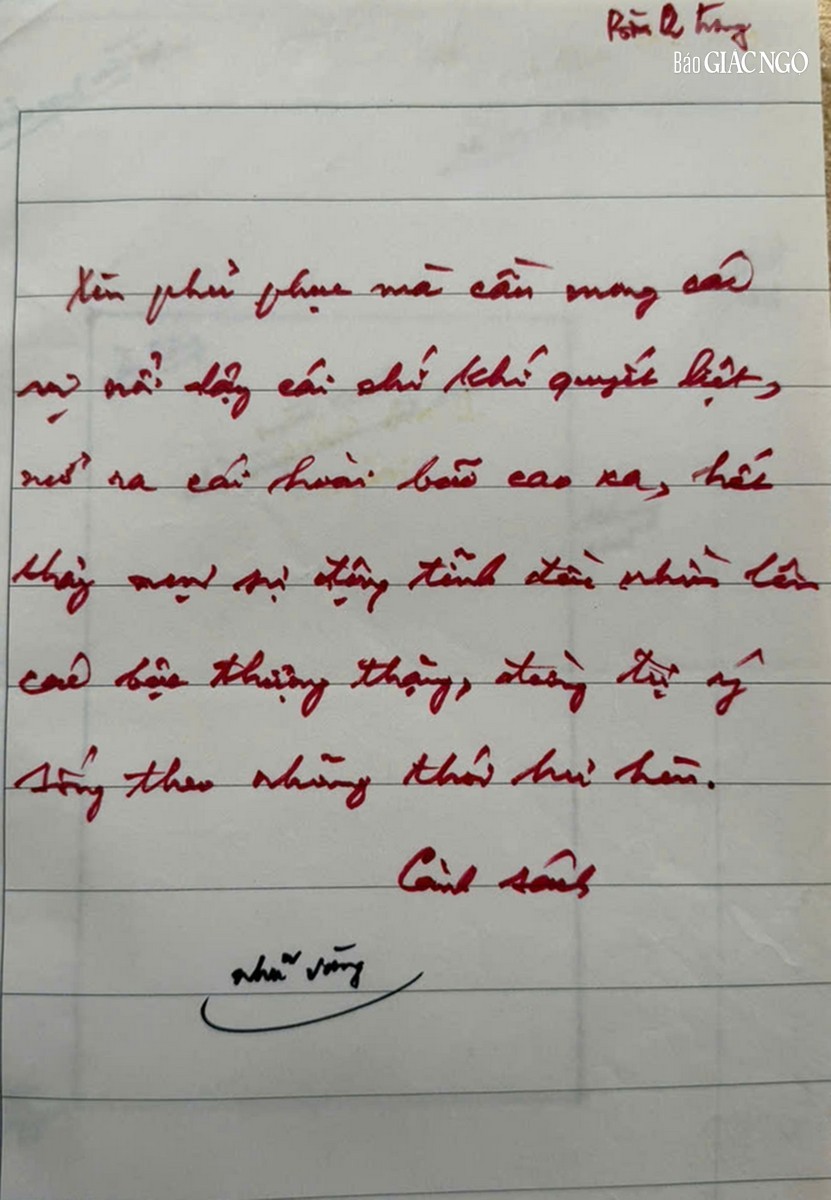 Báo GIÁC NGỘ
Xin phủ phục mà cần mong các
vị nổi dậy cái chí khí quyết liệt,
mở ra cái hoài bão cao xa, hết
thảy mọi sự động tĩnh đều nhìn lên
các bậc thượng thặng, đừng tự ý
sống theo những thói hư hèn.
Cảnh sách
nhũ vàng